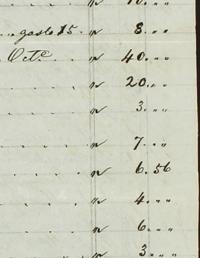 10..
..gosto 15 . " 8 . "
Octe " 40 . "
" 20 . "
" 3 . "
" 7 . "
" 6.56
" 4 . "
" 6 . "
" 3 . "